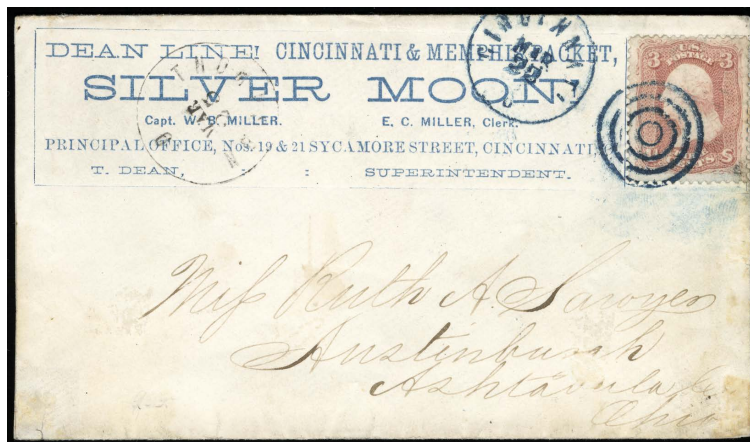 DEAN LINE! CINCINNATI & MEMPHIS PACKET,
SILVER MOON,
Capt. W. B. MILLER. E. C. MILLER, Clerk.
PRINCIPAL OFFICE, Nos. 19 & 21 SYCAMORE STREET, CINCINNATI
T. DEAN, : : SUPERINTENDENT.
CINCINNATI, O.
MAR
22
MAR
O
U.S.
POSTAGE
3 3
Miſs Ruth A. Sawyer
Austinburgh
Ashtabula Co
Ohio